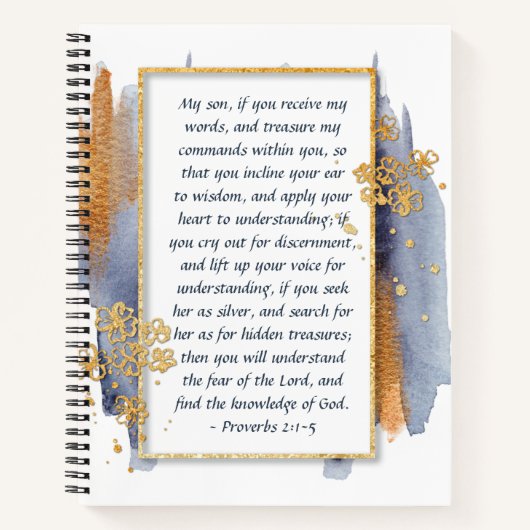 My son, if you receive my
words, and treasure my
commands within you, so
that you incline your ear
to wisdom, and apply your
heart to understanding; if
you cry out for discernment,
and lift up your voice for
understanding, if you seek
her as silver, and search for
her as for hidden treasures;
then you will understand
the fear of the Lord, and
find the knowledge of God.
~ Proverbs 2:1~5